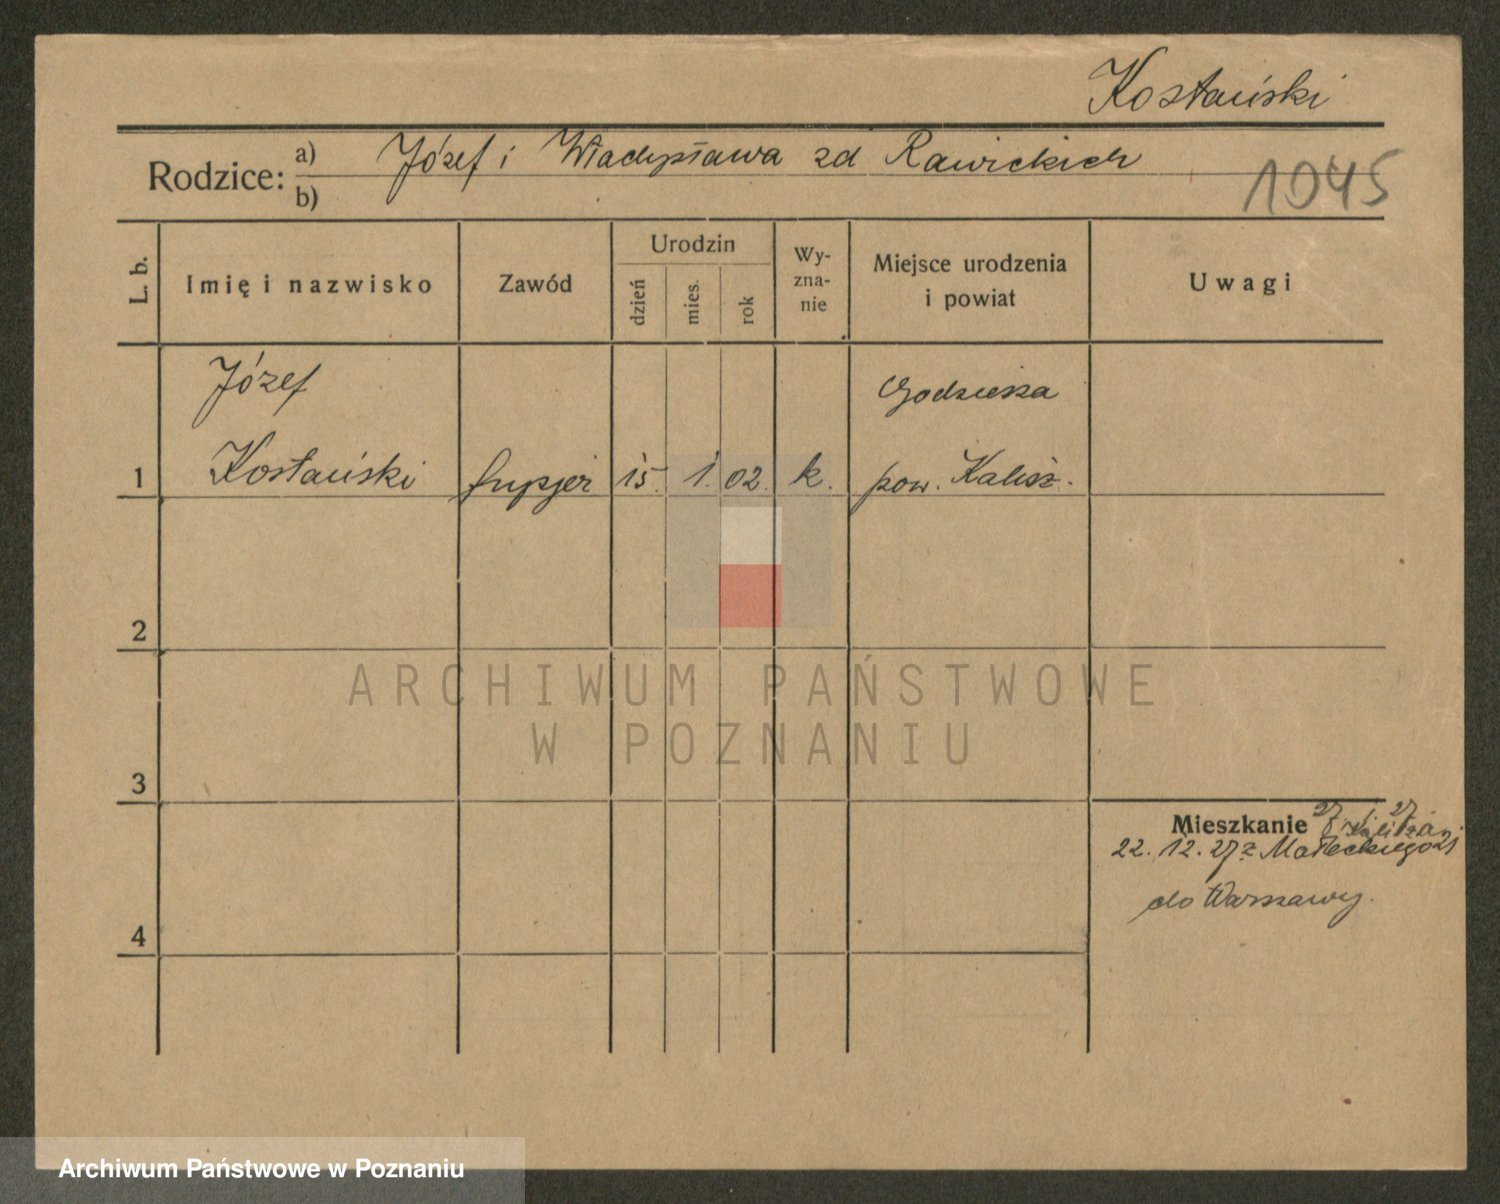 Kostański
Rodzice: a) Józef i Władysława zd Rawickich
b)
1045
L. b.
Imię i nazwisko
Zawód
Urodzin
dzień
mies.
rok
Wy-
zna-
nie
Miejsce urodzenia
i powiat
Uwagi
Józef
Godziesza
1 Kostański fryzjer 15. 1. 02. k. pow. Kalisz.
2
ARCHIWUM PAŃSTWOWE
W POZNANIU
3
Mieszkanie
22. 12. 27 z Małeckiego 21
do Warszawy.
4
Archiwum Państwowe w Poznaniu